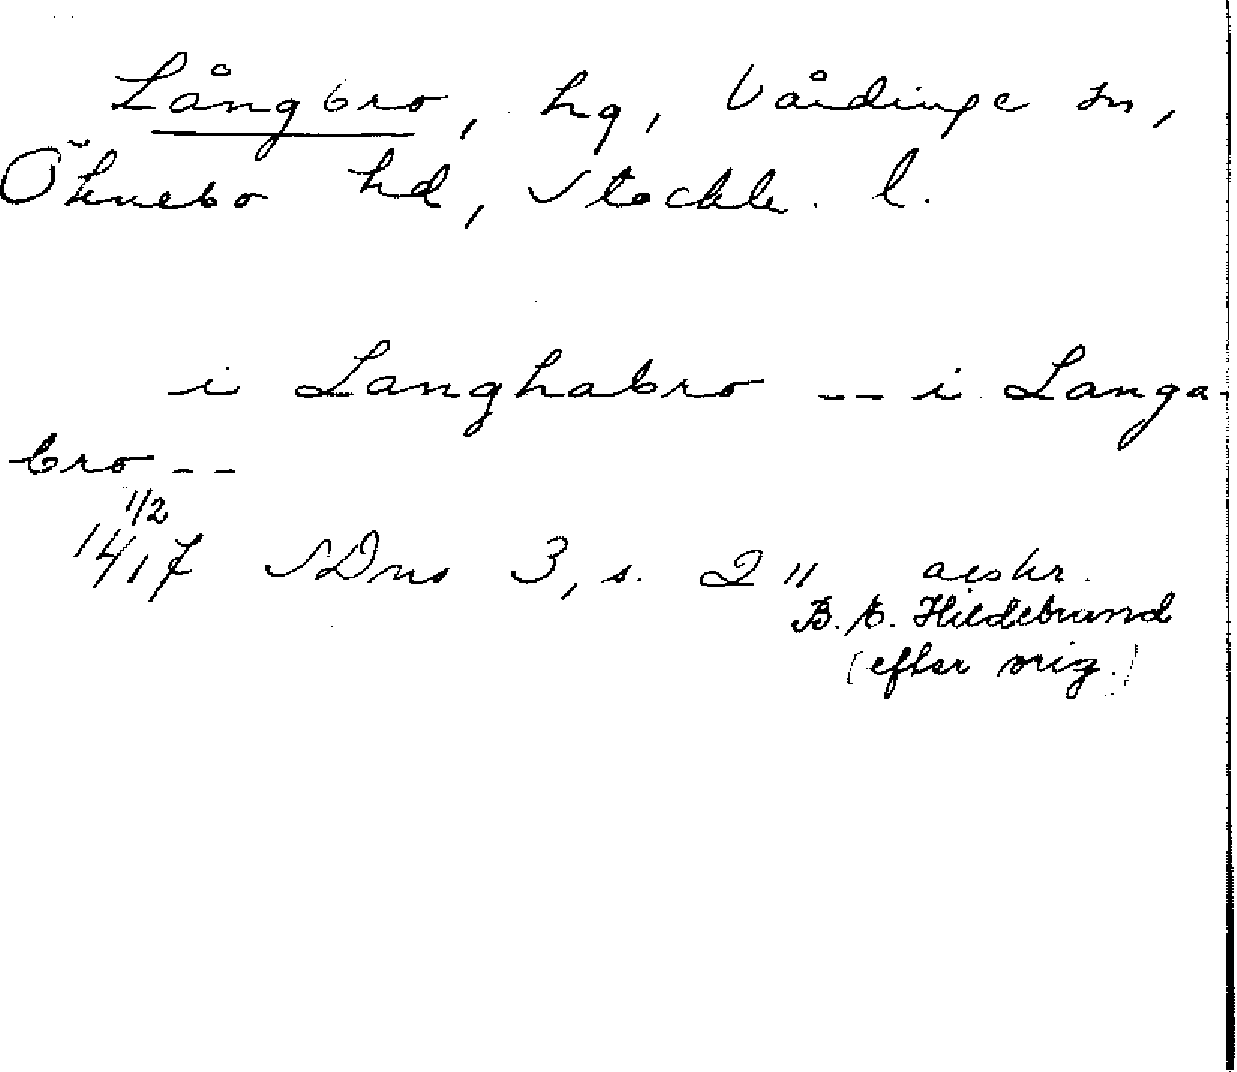 Långbro, hg, Vårdinge sn,
Öknebo hd, Stockh. l.
i Langhabro -- i Langa-
bro --
1/2
1417 SDns 3, s. 2 " avskr.
B. E. Hildebrand
(efter orig.)